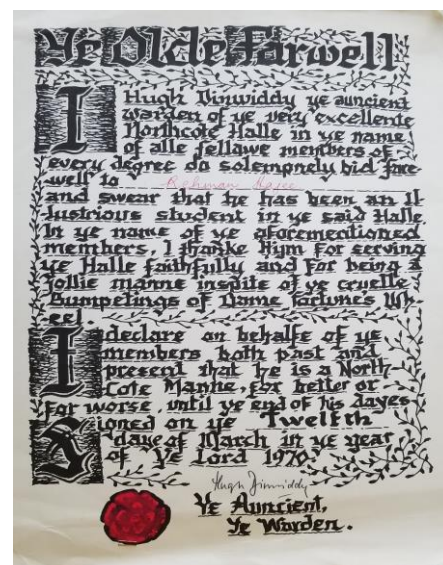 Ye Olde Farwell
I Hugh Dinwiddy ye auncient
Warden of ye very excellente
Northcote Halle in ye name
of alle fellawe members of
every degree do solempnely bid fare
well to Rehman
and swear that he has been an Il
lustrious student in ye said Halle
In ye name of ye aforementioned
members, I thanke Hym for serving
ye Halle faithfully and for being a
jollie manne inspite of ye cruelle
Bumpetings of Dame fortune's Wh
eel.
I declare on behalfe of ye
members both past and
present that he is a North
Cote Manne, for better or
for worse, until ye end of his dayes
Signed on ye Twelfth
daye of March in ye year
of Ye Lord 1970
Hugh Dinwiddy
Ye Auncient,
Ye Warden.